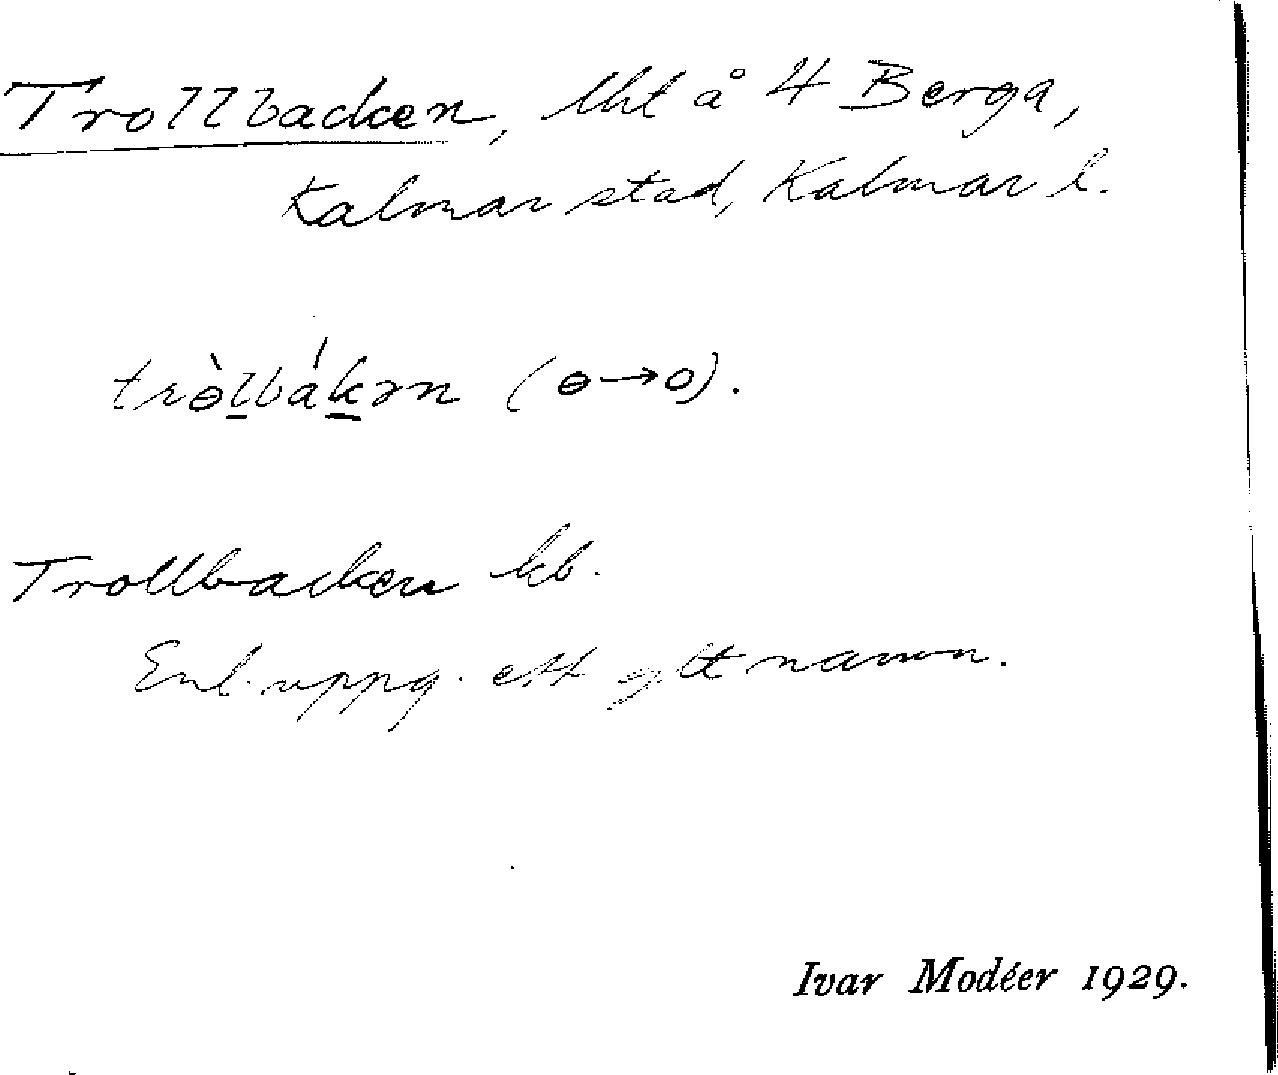 Trollbacken, lht å 4 Berga,
Kalmar stad, Kalmar l.
trɵ̀lbákən (ɵ→o).
Trollbacken kb.
Enl. uppg. ett glt namn.
Ivar Modéer 1929.